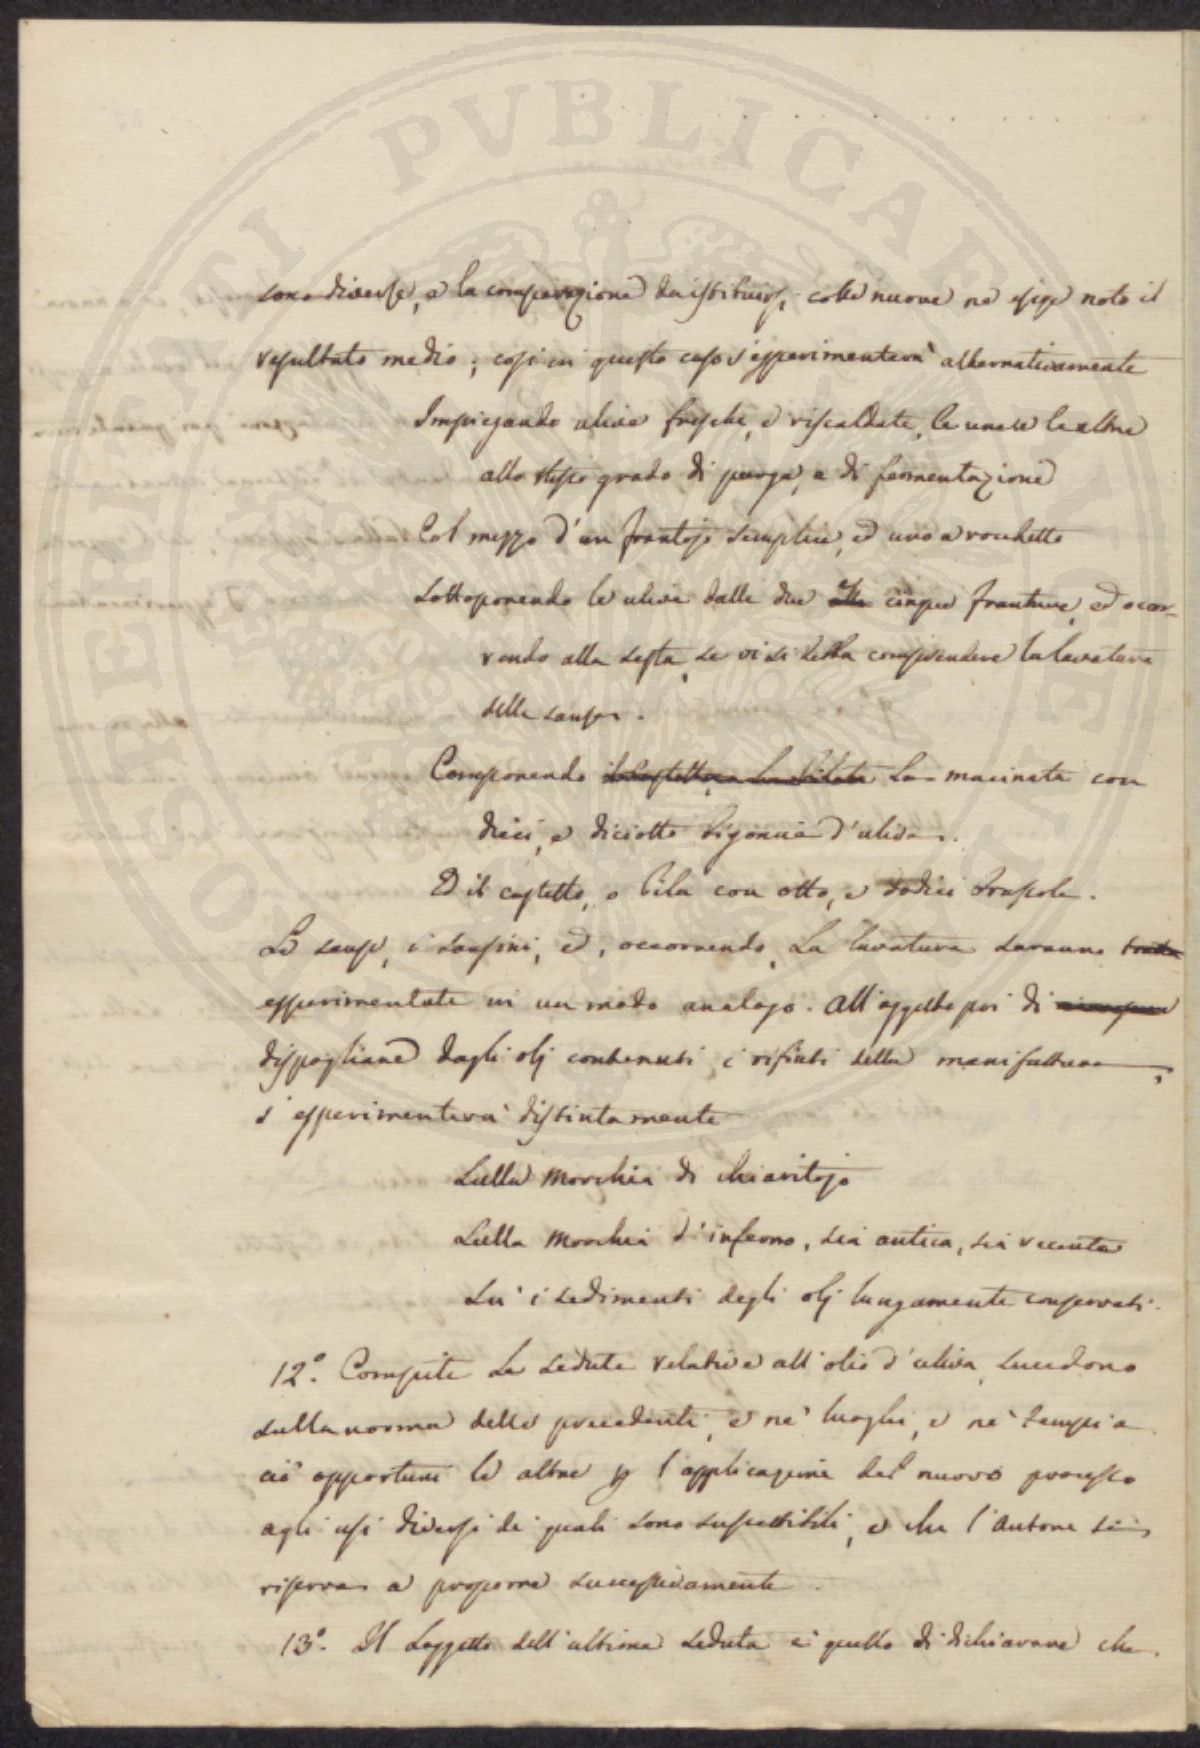 PROSPERITATI PVBLICAE
sono diverse, e la comparazione da istituirsi, colle nuove ne esige noto il
resultato medio; così in questo caso s'esperimenterà alternativamente
Impiegando ulive fresche, e riscaldate, le une e le altre
allo stesso grado di purga, e di fermentazione
Col mezzo d'un frantojo semplice, ed uno a rocchetto
Sottoponendo le ulive dalle due alle cinque franture, ed occor-
rendo alla sesta, se vi si debba comprendere la lavatura
delle sanse.
Componendo la macinata con
dieci, e diciotto bigoncie d'uliva.
E il castello, o Pila con otto, e dodici bruscole.
Le sanse, i sansini, ed, occorrendo, la lavatura saranno
esperimentate in un modo analogo. All'oggetto poi di
dispogliare dagli olj contenuti i rifiuti della manifattura,
s'esperimenterà distintamente
Sulla morchia di chiaritojo
Sulla morchia d'inferno, sia antica, sia recente
Su' i sedimenti degli olj lungamente conservati.
12.° Compite le sedute relative all'olio d'uliva, succedono
sulla norma delle precedenti, e ne' luoghi, e ne' tempi a
ciò opportuni le altre per l'applicazione del nuovo processo
agli usi diversi de' quali sono suscettibili, e che l'autore si
riserva a proporre successivamente.
13.° Il soggetto dell'ultima seduta è quello di dichiarare che